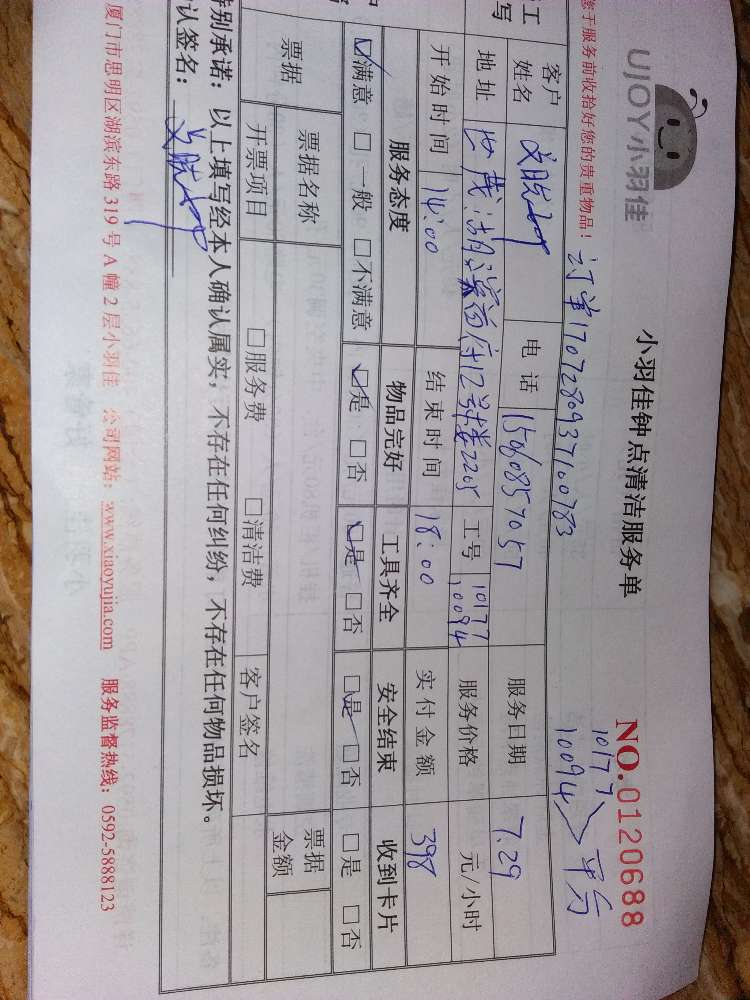 UJOY小羽佳
小羽佳钟点清洁服务单
NO.0120688
您于服务前收拾好您的贵重物品！
订单1707280937100783
10177
10094 平分
工
写
客户姓名
电话 15060857057
服务日期 7.29
地址 世茂湖滨首府12号楼2205
工号 10177 10094
服务价格 元/小时
开始时间 14:00
结束时间 18:00
实付金额 398
服务态度 物品完好 工具齐全 安全结束 收到卡片
☑满意 □一般 □不满意 ☑是 □否 ☑是 □否 ☑是 □否 □是 □否
票据 票据名称 票据金额
开票项目 □服务费 □清洁费 客户签名
特别承诺：以上填写经本人确认属实，不存在任何纠纷，不存在任何物品损坏。
认签名：
厦门市思明区湖滨东路 319 号 A 幢 2 层小羽佳 公司网站：www.xiaoyujia.com 服务监督热线：0592-5888123